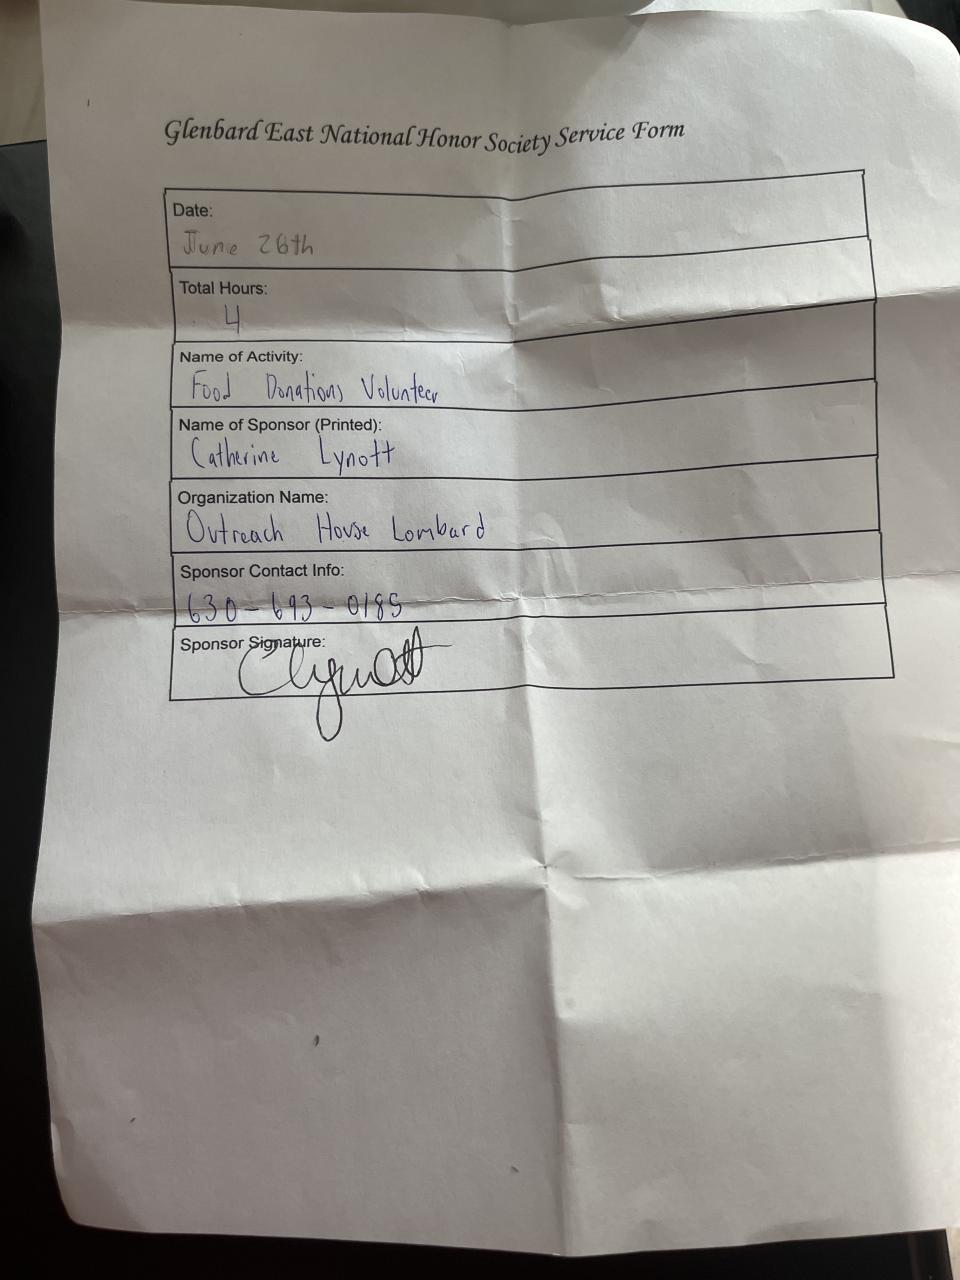 Glenbard East National Honor Society Service Form
Date:
June 26th
Total Hours:
4
Name of Activity:
Food Donations Volunteer
Name of Sponsor (Printed):
Catherine Lynott
Organization Name:
Outreach House Lombard
Sponsor Contact Info:
630-693-0185
Sponsor Signature:
CLynott